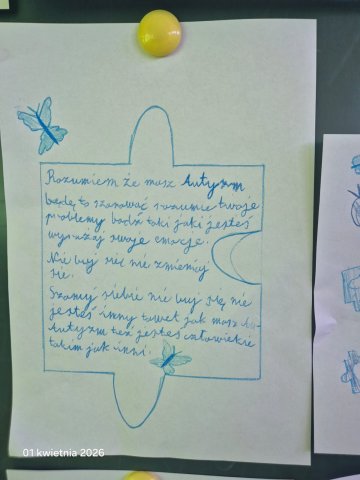 Rozumiem że masz Autyzm
będę to szanować rozumie twoje
problemy bądź taki jaki jesteś
wyrażaj swoje emocje.
Nie buj się nie zmieniaj
się.
Szanuj siebie nie buj się nie
jesteś inny nawet jak masz Au-
Autyzm też jesteś człowiekie
takim jak inni.
01 kwietnia 2026